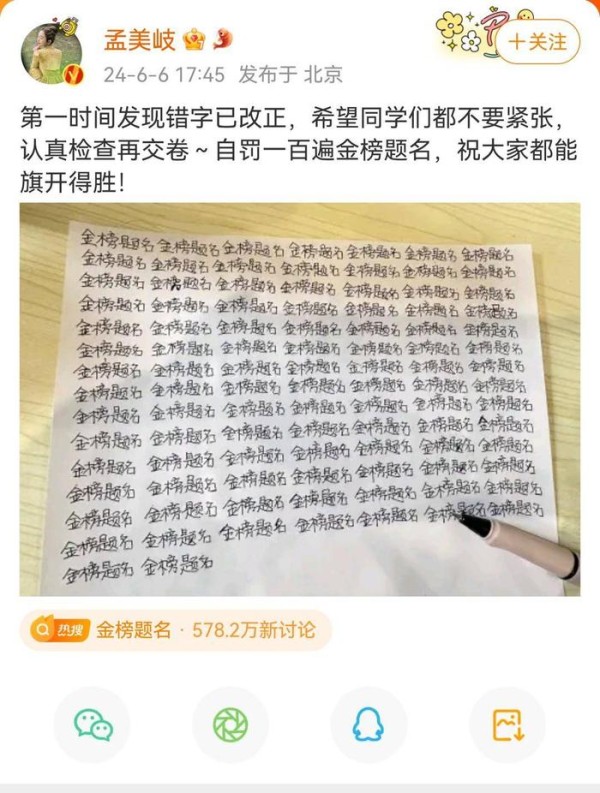 孟美岐
24-6-6 17:45 发布于 北京
+关注
第一时间发现错字已改正，希望同学们都不要紧张，
认真检查再交卷～自罚一百遍金榜题名，祝大家都能
旗开得胜！
金榜题名 金榜题名 金榜题名 金榜题名 金榜题名 金榜题名 金榜题名
金榜题名 金榜题名 金榜题名 金榜题名 金榜题名 金榜题名 金榜题名
金榜题名 金榜题名 金榜题名 金榜题名 金榜题名 金榜题名 金榜题名
金榜题名 金榜题名 金榜题名 金榜题名 金榜题名 金榜题名 金榜题名
金榜题名 金榜题名 金榜题名 金榜题名 金榜题名 金榜题名 金榜题名
金榜题名 金榜题名 金榜题名 金榜题名 金榜题名 金榜题名 金榜题名
金榜题名 金榜题名 金榜题名 金榜题名 金榜题名 金榜题名 金榜题名
金榜题名 金榜题名 金榜题名 金榜题名 金榜题名 金榜题名 金榜题名
金榜题名 金榜题名 金榜题名 金榜题名 金榜题名 金榜题名 金榜题名
金榜题名 金榜题名 金榜题名 金榜题名 金榜题名 金榜题名 金榜题名
金榜题名 金榜题名 金榜题名 金榜题名 金榜题名 金榜题名 金榜题名
金榜题名 金榜题名 金榜题名 金榜题名 金榜题名 金榜题名 金榜题名
金榜题名 金榜题名 金榜题名 金榜题名 金榜题名 金榜题名 金榜题名
金榜题名 金榜题名 金榜题名 金榜题名 金榜题名 金榜题名 金榜题名
金榜题名 金榜题名
热搜 金榜题名 · 578.2万新讨论